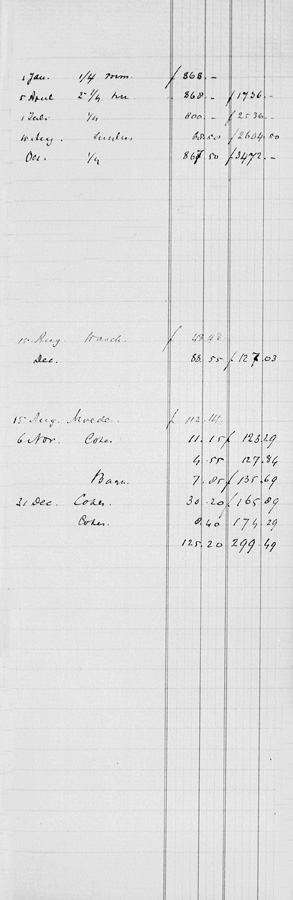 1 Jan. 1/4 ƒ 868.—
5 April 2e 1/4 868.— ƒ 1736.—
1 Juli 1/4 800.— ƒ 2536.—
10 Aug. 68.50 ƒ 2604.50
Dec. 1/4 867.50 ƒ 3472.—
10 Aug. ƒ 48.48
Dec. 88.55 ƒ 127.03
15 Aug. ƒ 112.14
6 Nov. Cohen 11.15 ƒ 123.29
4.55 127.84
7.85 ƒ 135.69
21 Dec. Cohen 30.20 ƒ 165.89
Cohen. 8.40 174.29
125.20 299.49